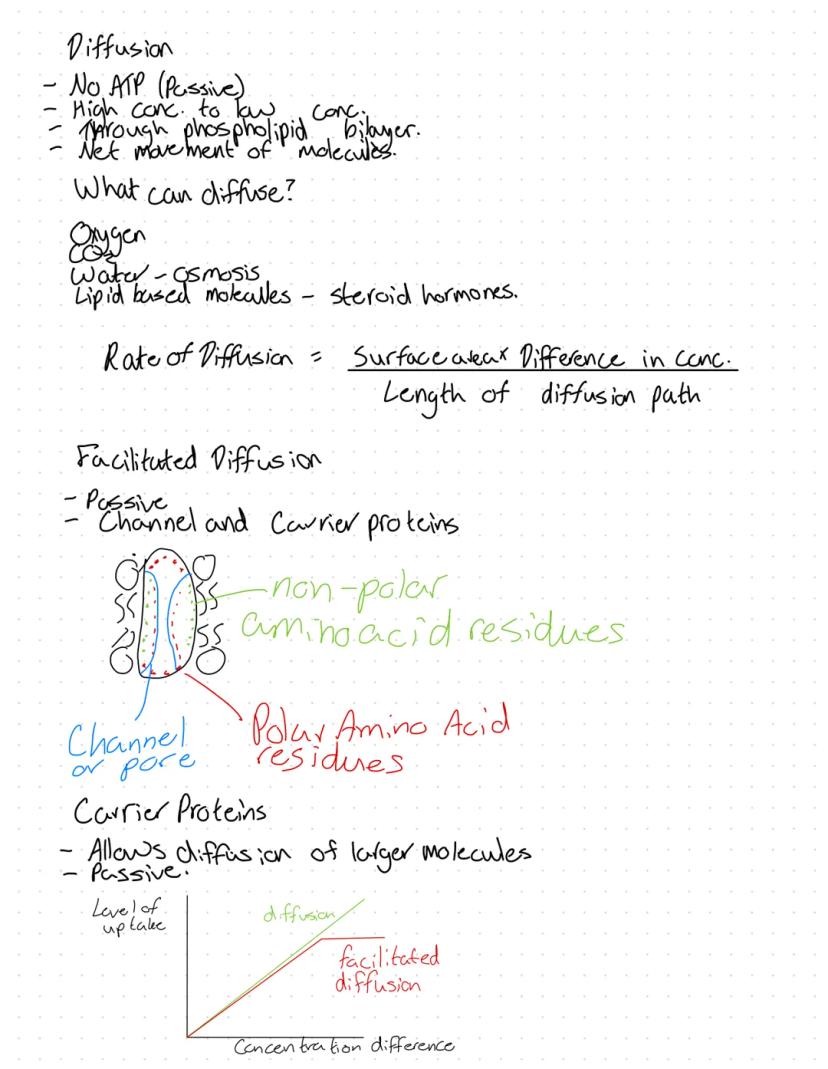 Diffusion
- No ATP (Passive)
- High conc. to low conc.
- Through phospholipid bilayer.
- Net movement of molecules.
What can diffuse?
Oxygen
CO2
Water - osmosis
Lipid based molecules - steroid hormones.
Rate of Diffusion = Surface area x Difference in conc.
Length of diffusion path
Facilitated Diffusion
- Passive
- Channel and Carrier proteins
non-polar
amino acid residues
Channel
or pore
Polar Amino Acid
residues
Carrier Proteins
- Allows diffusion of larger molecules
- Passive.
Level of
uptake
diffusion
facilitated
diffusion
Concentration difference